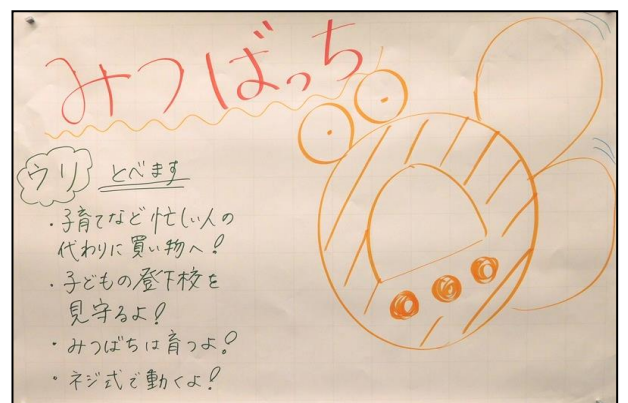 みつばっち
ウリ とべます
・子育てなど忙しい人の
代わりに買い物へ!
・子どもの登下校を
見守るよ!
・みつばちは育つよ!
・ネジ式で動くよ!